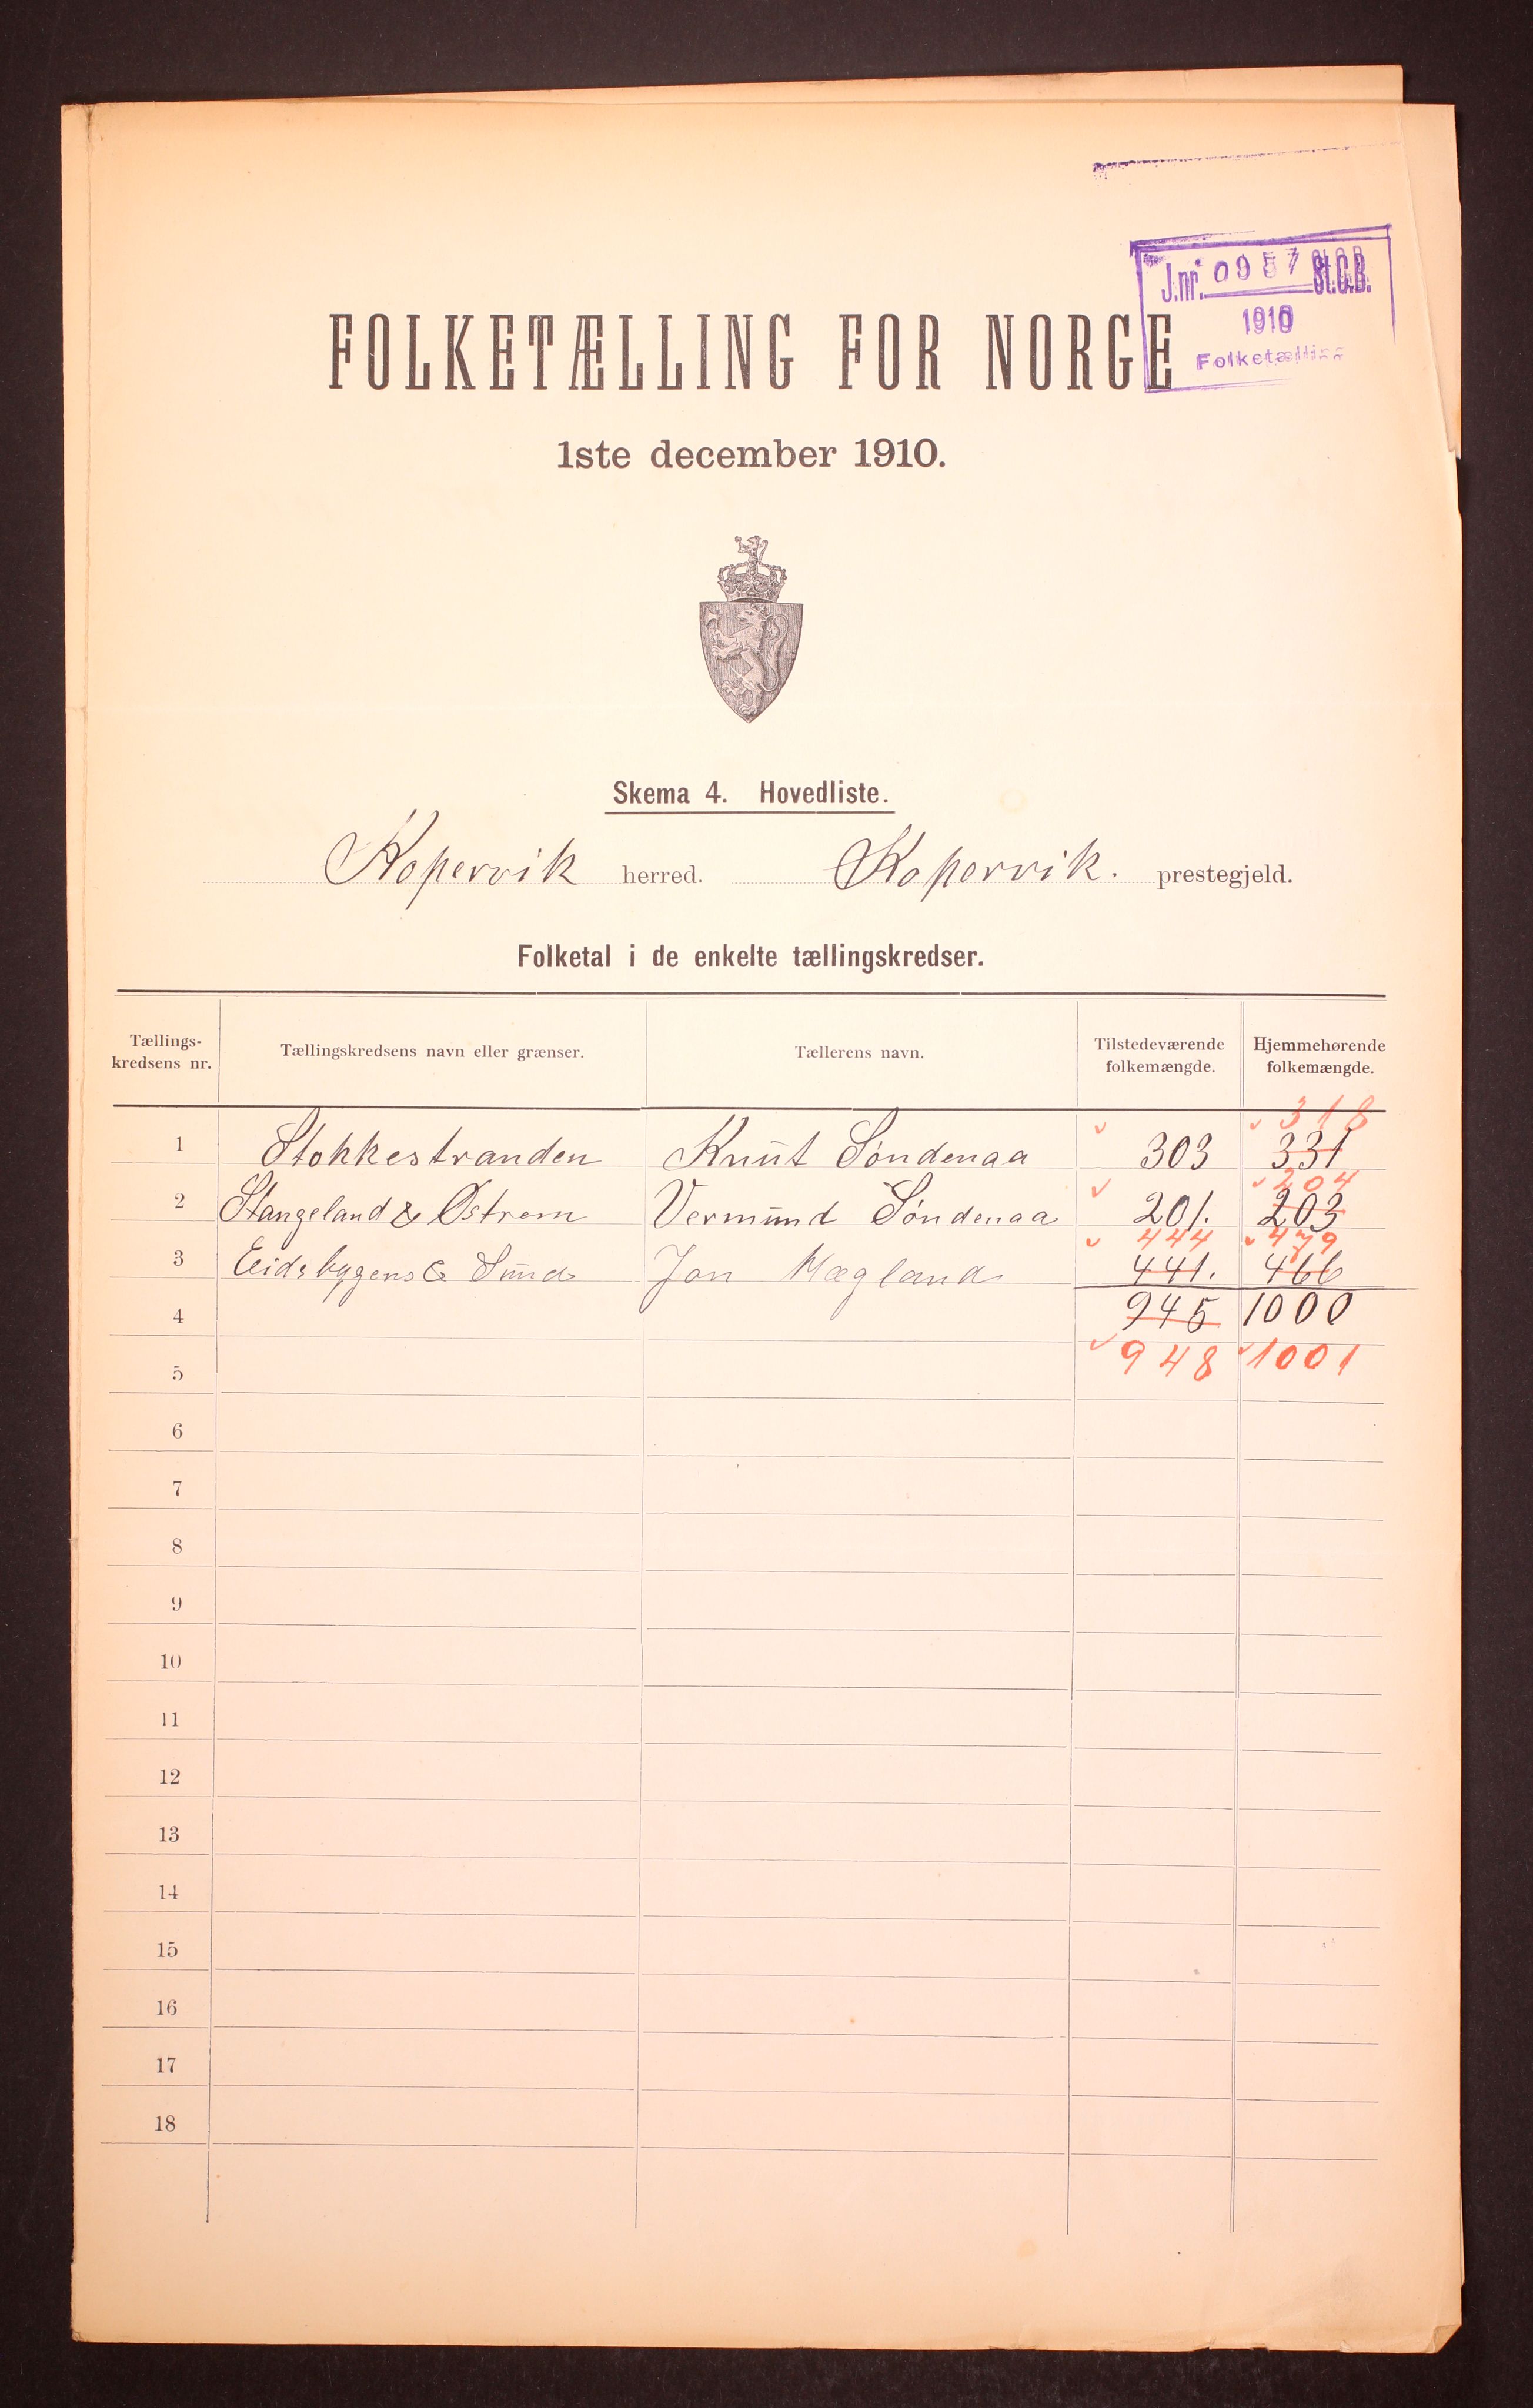 J.nr. 0957 St.C.B.
1910
Folketælling
FOLKETÆLLING FOR NORGE
1ste december 1910.
Skema 4. Hovedliste.
Kopervik herred. Kopervik. prestegjeld.
Folketal i de enkelte tællingskredser.
Tællings-kredsens nr. Tællingskredsens navn eller grænser. Tællerens navn. Tilstedeværende folkemængde. Hjemmehørende folkemængde.
318
1 Stokkestranden Knut Søndenaa 303 331
204
2 Stangeland & Østrem Vermund Søndenaa 201. 203
444 479
3 Eidsbygens & Sund Jon Mægland 441. 466
4 945 1000
5 948 1001
6
7
8
9
10
11
12
13
14
15
16
17
18